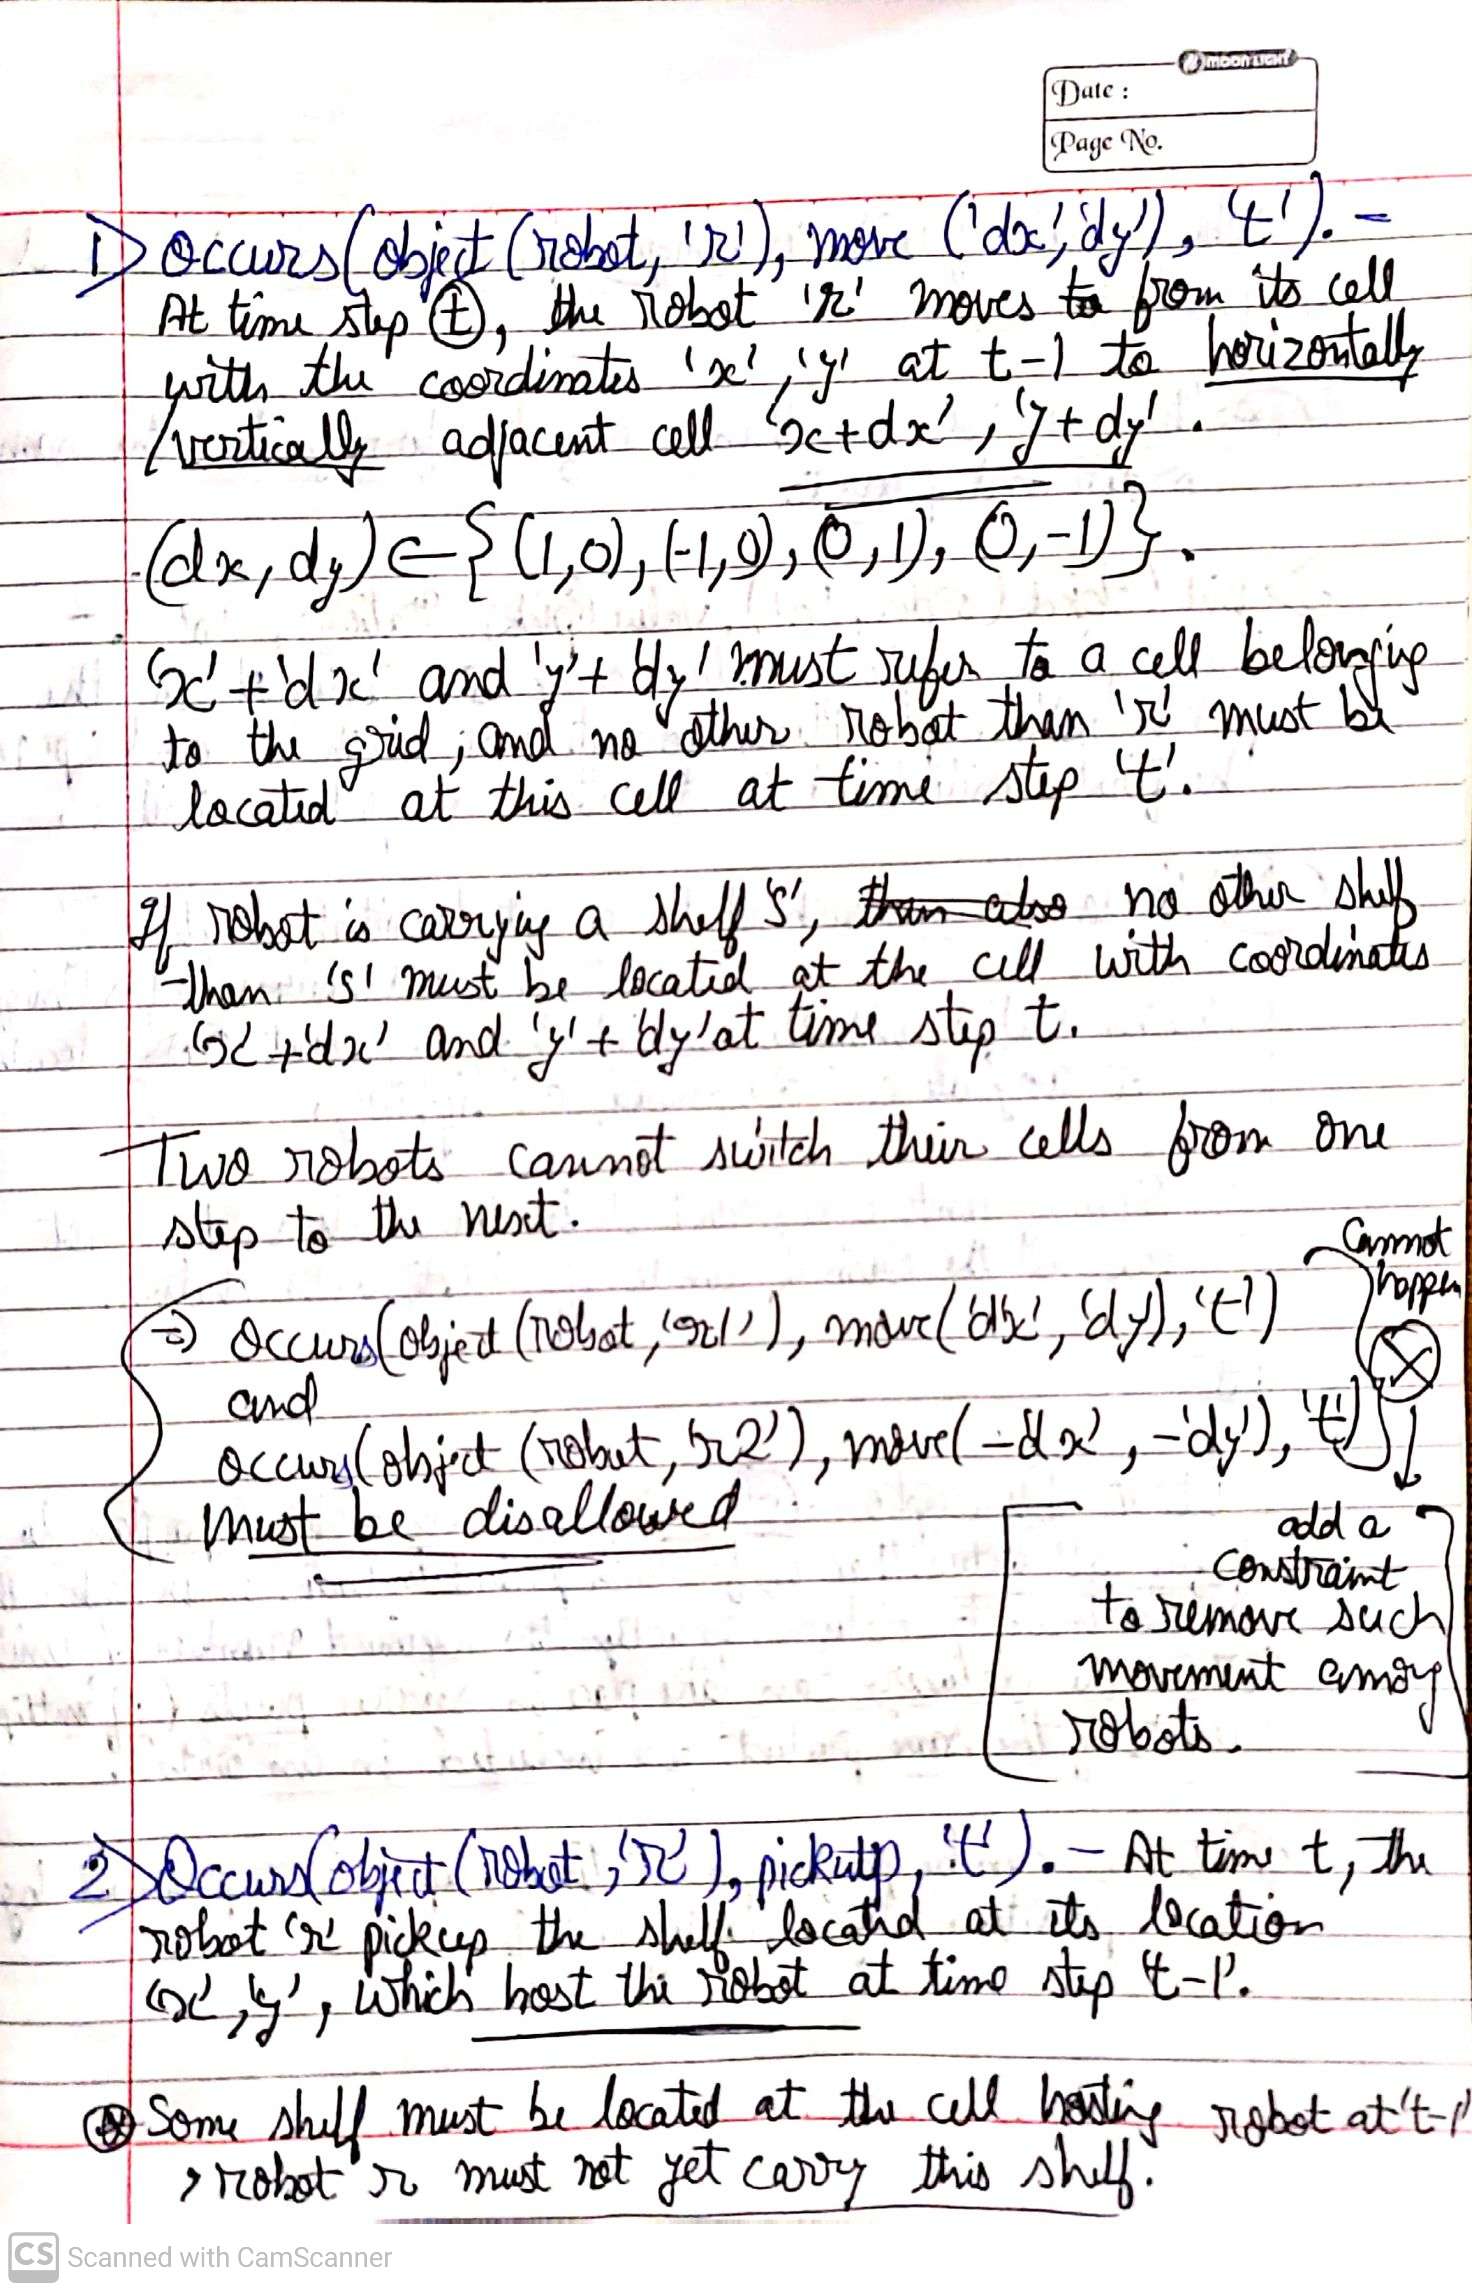 MOONLIGHT
Date :
Page No.
1) Occurs(object(robot, 'r'), move ('dx','dy'), 't'). -
At time step t, the robot 'r' moves to from its cell
with the coordinates 'x','y' at t-1 to horizontally
/vertically adjacent cell 'x+dx', 'y+dy'.
(dx, dy) ∈ {(1,0), (-1,0), (0,1), (0,-1)}.
'x'+'dx' and 'y'+'dy' must refer to a cell belonging
to the grid, and no other robot than 'r' must be
located at this cell at time step 't'.
If robot is carrying a shelf 's', then also no other shelf
than 's' must be located at the cell with coordinates
'x'+'dx' and 'y'+'dy' at time step t.
Two robots cannot switch their cells from one
step to the next.
Cannot
happen
⇒ Occurs(object(robot,'r1'), move('dx','dy'),'t')
and
occurs(object (robot,'r2'), move(-'dx',-'dy'), 't')
must be disallowed
add a
constraint
to remove such
movement among
robots.
2) Occurs(object(robot,'r'), pickup, 't'). - At time t, the
robot 'r' pickup the shelf located at its location
'x','y', which host the robot at time step 't-1'.
Some shelf must be located at the cell hosting robot at 't-1'
, robot r must not yet carry this shelf.
CS Scanned with CamScanner